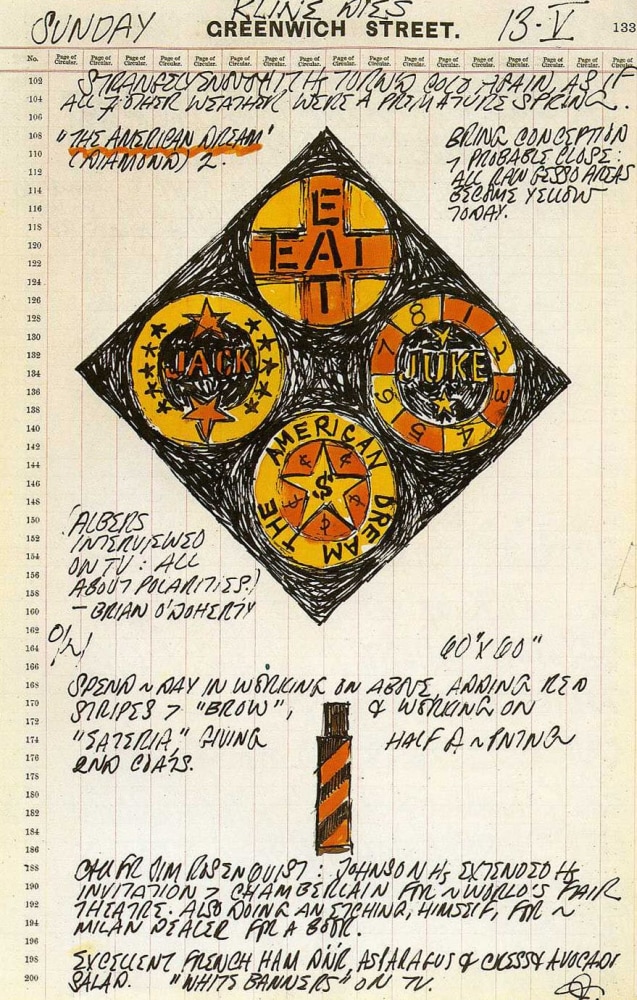 KLINE DIES
SUNDAY GREENWICH STREET. 13·V 133
No. Page of Circular. Page of Circular. Page of Circular. Page of Circular. Page of Circular. Page of Circular. Page of Circular. Page of Circular. Page of Circular. Page of Circular. Page of Circular. Page of Circular. Page of Circular. Page of Circular.
102
104
106
108
110
112
114
116
118
120
122
124
126
128
130
132
134
136
138
140
142
144
146
148
150
152
154
156
158
160
162
164
166
168
170
172
174
176
178
180
182
184
186
188
190
192
194
196
198
200
STRANGELY ENOUGH IT HS TURNED COLD AGAIN, AS IF
ALL OTHER WEATHER WERE A PREMATURE SPRING.
"THE AMERICAN DREAM"
(DIAMOND) 2.
BRING CONCEPTION
PROBABLE CLOSE:
ALL RAW GESSO AREAS
BECOME YELLOW
TODAY.
E
EAT
T
JACK
JUKE
8 1 2 3 4 5 6 7
THE AMERICAN DREAM
$
¢ ¢ ¢ ¢ ¢
'ALBERS
INTERVIEWED
ON TV: ALL
ABOUT POLARITIES.'
– BRIAN O'DOHERTY
60" X 60"
SPEND ~ DAY IN WORKING ON ABOVE, ADDING RED
STRIPES > "BROW", & WORKING ON
"EATERIA," GIVING HALF D ~ PNTNG
2ND COATS.
CALL FR JIM ROSENQUIST: JOHNSON HS EXTENDED HS
INVITATION > CHAMBERLAIN FOR ~ WORLD'S FAIR
THEATRE. ALSO DOING AN ETCHING, HIMSELF, FOR ~
MILAN DEALER FOR A BOOK.
EXCELLENT FRENCH HAM DNR, ASPARAGUS & CRESS & AVOCADO
SALAD. "WHITE BANNERS" ON TV.